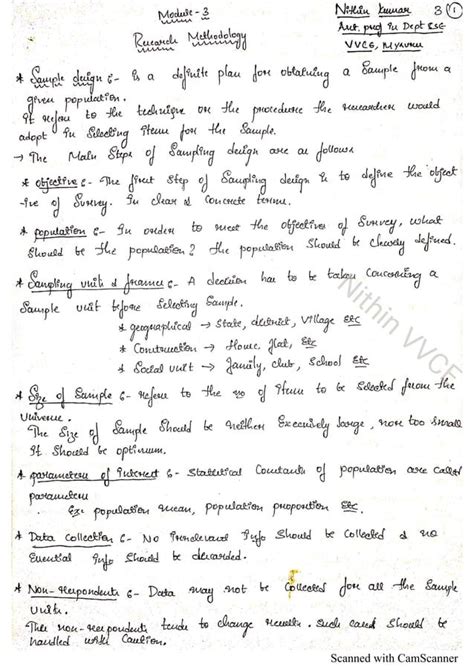 Module-3
Research Methodology
Nithin Kumar
Asst. prof in Dept CSE
VVCE, Mysuru
3 1
* Sample design :- Is a definite plan for obtaining a Sample from a
given population.
It refers to the technique or the procedure the researchers would
adopt in Selecting items for the Sample.
→ The Main Steps of Sampling design are as follows
* objective :- The first Step of Sampling design is to define the object
-ive of Survey. In clear & Concrete terms.
* population :- In order to meet the objectives of Survey, what
Should be the population? the population Should be clearly defined.
* Sampling units & frames :- A decision has to be taken Concerning a
Sample unit before Selecting Sample.
* geographical → State, district, Village Etc
* Construction → House, flat, Etc
* Social unit → family, club, School Etc
* Size of Sample :- Refers to the no of Items to be Selected from the
Universe.
The Size of Sample Should be neither Excessively large, nor too small
It Should be optimum.
* parameters of interest :- Statistical Constants of population are called
parameters
Ex: population mean, population proportion Etc.
* Data Collection :- No Irrelevant Info Should be Collected & no
Essential Info Should be discarded.
* Non-respondents :- Data may not be Collected for all the Sample
Units.
The non-respondents tends to change results. Such cases Should be
handled with Caution.
Nithin VVCE
Scanned with CamScanner